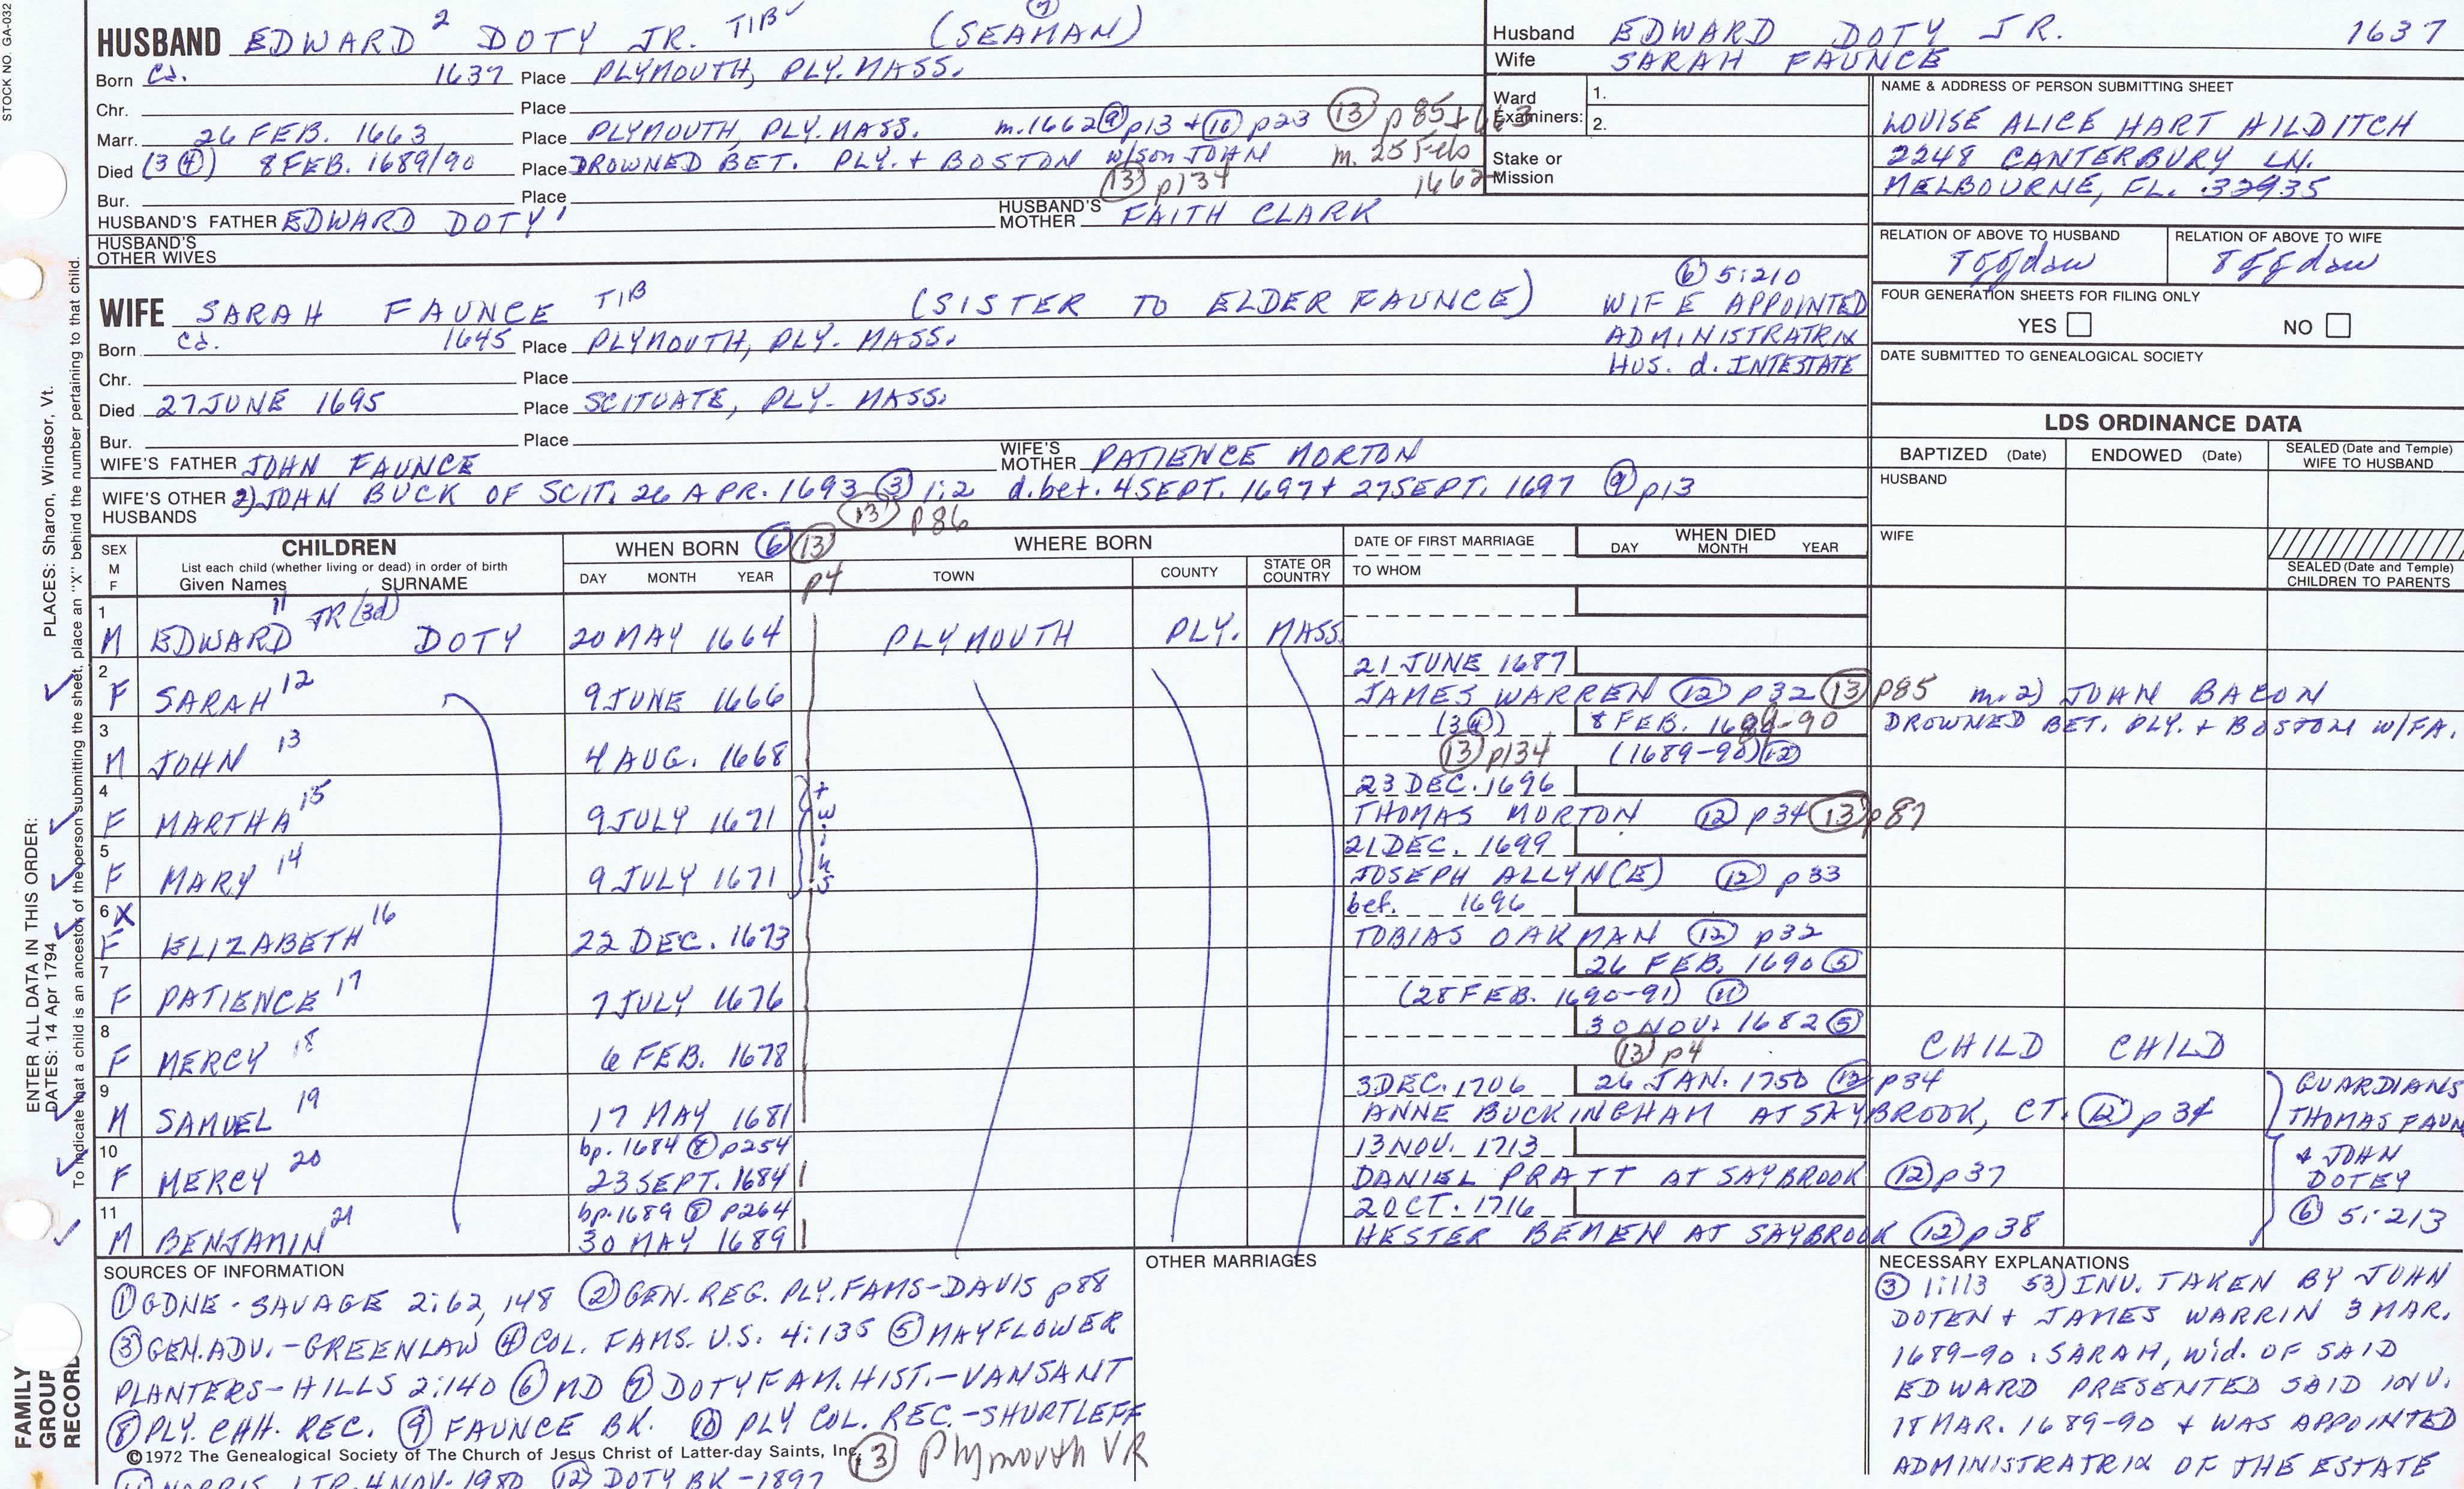 STOCK NO. GA-032
HUSBAND EDWARD 2 DOTY JR. TIB (SEAMAN) 7
Born Ca. 1637 Place PLYMOUTH, PLY. MASS.
Chr. Place
Marr. 26 FEB. 1663 Place PLYMOUTH, PLY. MASS. m. 1662 9 p13 + 10 p23 13 p85 + 663
Died (3 4) 8 FEB. 1689/90 Place DROWNED BET. PLY. + BOSTON w/son JOHN m. 25 Feb 1662
Bur. Place 13 p134
HUSBAND'S FATHER EDWARD DOTY 1 HUSBAND'S MOTHER FAITH CLARK
HUSBAND'S OTHER WIVES
Husband EDWARD DOTY JR. 1637
Wife SARAH FAUNCE
Ward Examiners: 1.
2.
Stake or Mission
NAME & ADDRESS OF PERSON SUBMITTING SHEET
LOUISE ALICE HART HILDITCH
2248 CANTERBURY LN.
MELBOURNE, FL. 32935
RELATION OF ABOVE TO HUSBAND RELATION OF ABOVE TO WIFE
FOUR GENERATION SHEETS FOR FILING ONLY
YES NO
DATE SUBMITTED TO GENEALOGICAL SOCIETY
WIFE SARAH FAUNCE TIB (SISTER TO ELDER FAUNCE)
6 5:210
WIFE APPOINTED
ADMINISTRATRIX
HUS. d. INTESTATE
Born Ca. 1645 Place PLYMOUTH, PLY. MASS.
Chr. Place
Died 27 JUNE 1695 Place SCITUATE, PLY. MASS.
Bur. Place
WIFE'S FATHER JOHN FAUNCE WIFE'S MOTHER PATIENCE MORTON
WIFE'S OTHER HUSBANDS 2) JOHN BUCK OF SCIT. 26 APR. 1693 3 1:2 d. bet. 4 SEPT. 1697 + 27 SEPT. 1697 9 p13
13 p86
LDS ORDINANCE DATA
BAPTIZED (Date) ENDOWED (Date) SEALED (Date and Temple) WIFE TO HUSBAND
HUSBAND
WIFE
SEALED (Date and Temple) CHILDREN TO PARENTS
SEX M F CHILDREN List each child (whether living or dead) in order of birth Given Names SURNAME
WHEN BORN 6 13 p4 DAY MONTH YEAR
WHERE BORN TOWN COUNTY STATE OR COUNTRY
DATE OF FIRST MARRIAGE TO WHOM WHEN DIED DAY MONTH YEAR
1 M EDWARD 11 JR (3d) DOTY 20 MAY 1664 PLYMOUTH PLY. MASS.
2 F SARAH 12 9 JUNE 1666 21 JUNE 1687
JAMES WARREN 12 p32 13 p85 m. 2) JOHN BACON
3 M JOHN 13 4 AUG. 1668 (3 4) 8 FEB. 1689-90 DROWNED BET. PLY. + BOSTON W/FA.
13 p134 (1689-90) 12
4 F MARTHA 15 9 JULY 1671 twins 23 DEC. 1696
THOMAS MORTON 12 p34 13 p87
5 F MARY 14 9 JULY 1671 21 DEC. 1699
JOSEPH ALLYN(E) 12 p33
6 X F ELIZABETH 16 22 DEC. 1673 bef. 1696
TOBIAS OAKMAN 12 p32
7 F PATIENCE 17 7 JULY 1676 26 FEB. 1690 5
(28 FEB. 1690-91) 11
8 F MERCY 18 6 FEB. 1678 30 NOV. 1682 5 CHILD CHILD
13 p4
9 M SAMUEL 19 17 MAY 1681 3 DEC. 1706 26 JAN. 1750 12 p34
ANNE BUCKINGHAM AT SAYBROOK, CT. 12 p34
10 F MERCY 20 bp. 1684 8 p254 23 SEPT. 1684 13 NOV. 1713
DANIEL PRATT AT SAYBROOK 12 p37
11 M BENJAMIN 21 bp. 1689 8 p264 30 MAY 1689 2 OCT. 1716
HESTER BEMEN AT SAYBROOK 12 p38
GUARDIANS
THOMAS FAUN
+ JOHN
DOTEY
6 5:213
SOURCES OF INFORMATION
1 GDNE - SAVAGE 2:62, 148 2 GEN. REG. PLY. FAMS - DAVIS p88
3 GEN. ADV. - GREENLAW 4 COL. FAMS. U.S. 4:135 5 MAYFLOWER
PLANTERS - HILLS 2:140 6 MD 7 DOTY FAM. HIST. - VANSANT
8 PLY. CHH. REC. 9 FAUNCE BK. 10 PLY COL. REC. - SHURTLEFF
©1972 The Genealogical Society of The Church of Jesus Christ of Latter-day Saints, Inc.
13 Plymouth VR
11 NORRIS LTR. 4 NOV. 1980 12 DOTY BK - 1897
OTHER MARRIAGES
NECESSARY EXPLANATIONS
3 1:113 53) INV. TAKEN BY JOHN
DOTEN + JAMES WARRIN 3 MAR.
1689-90. SARAH, wid. OF SAID
EDWARD PRESENTED SAID INV.
18 MAR. 1689-90 + WAS APPOINTED
ADMINISTRATRIX OF THE ESTATE
FAMILY GROUP RECORD
ENTER ALL DATA IN THIS ORDER:
DATES: 14 Apr 1794 PLACES: Sharon, Windsor, Vt.
To indicate that a child is an ancestor of the person submitting the sheet, place an "X" behind the number pertaining to that child.